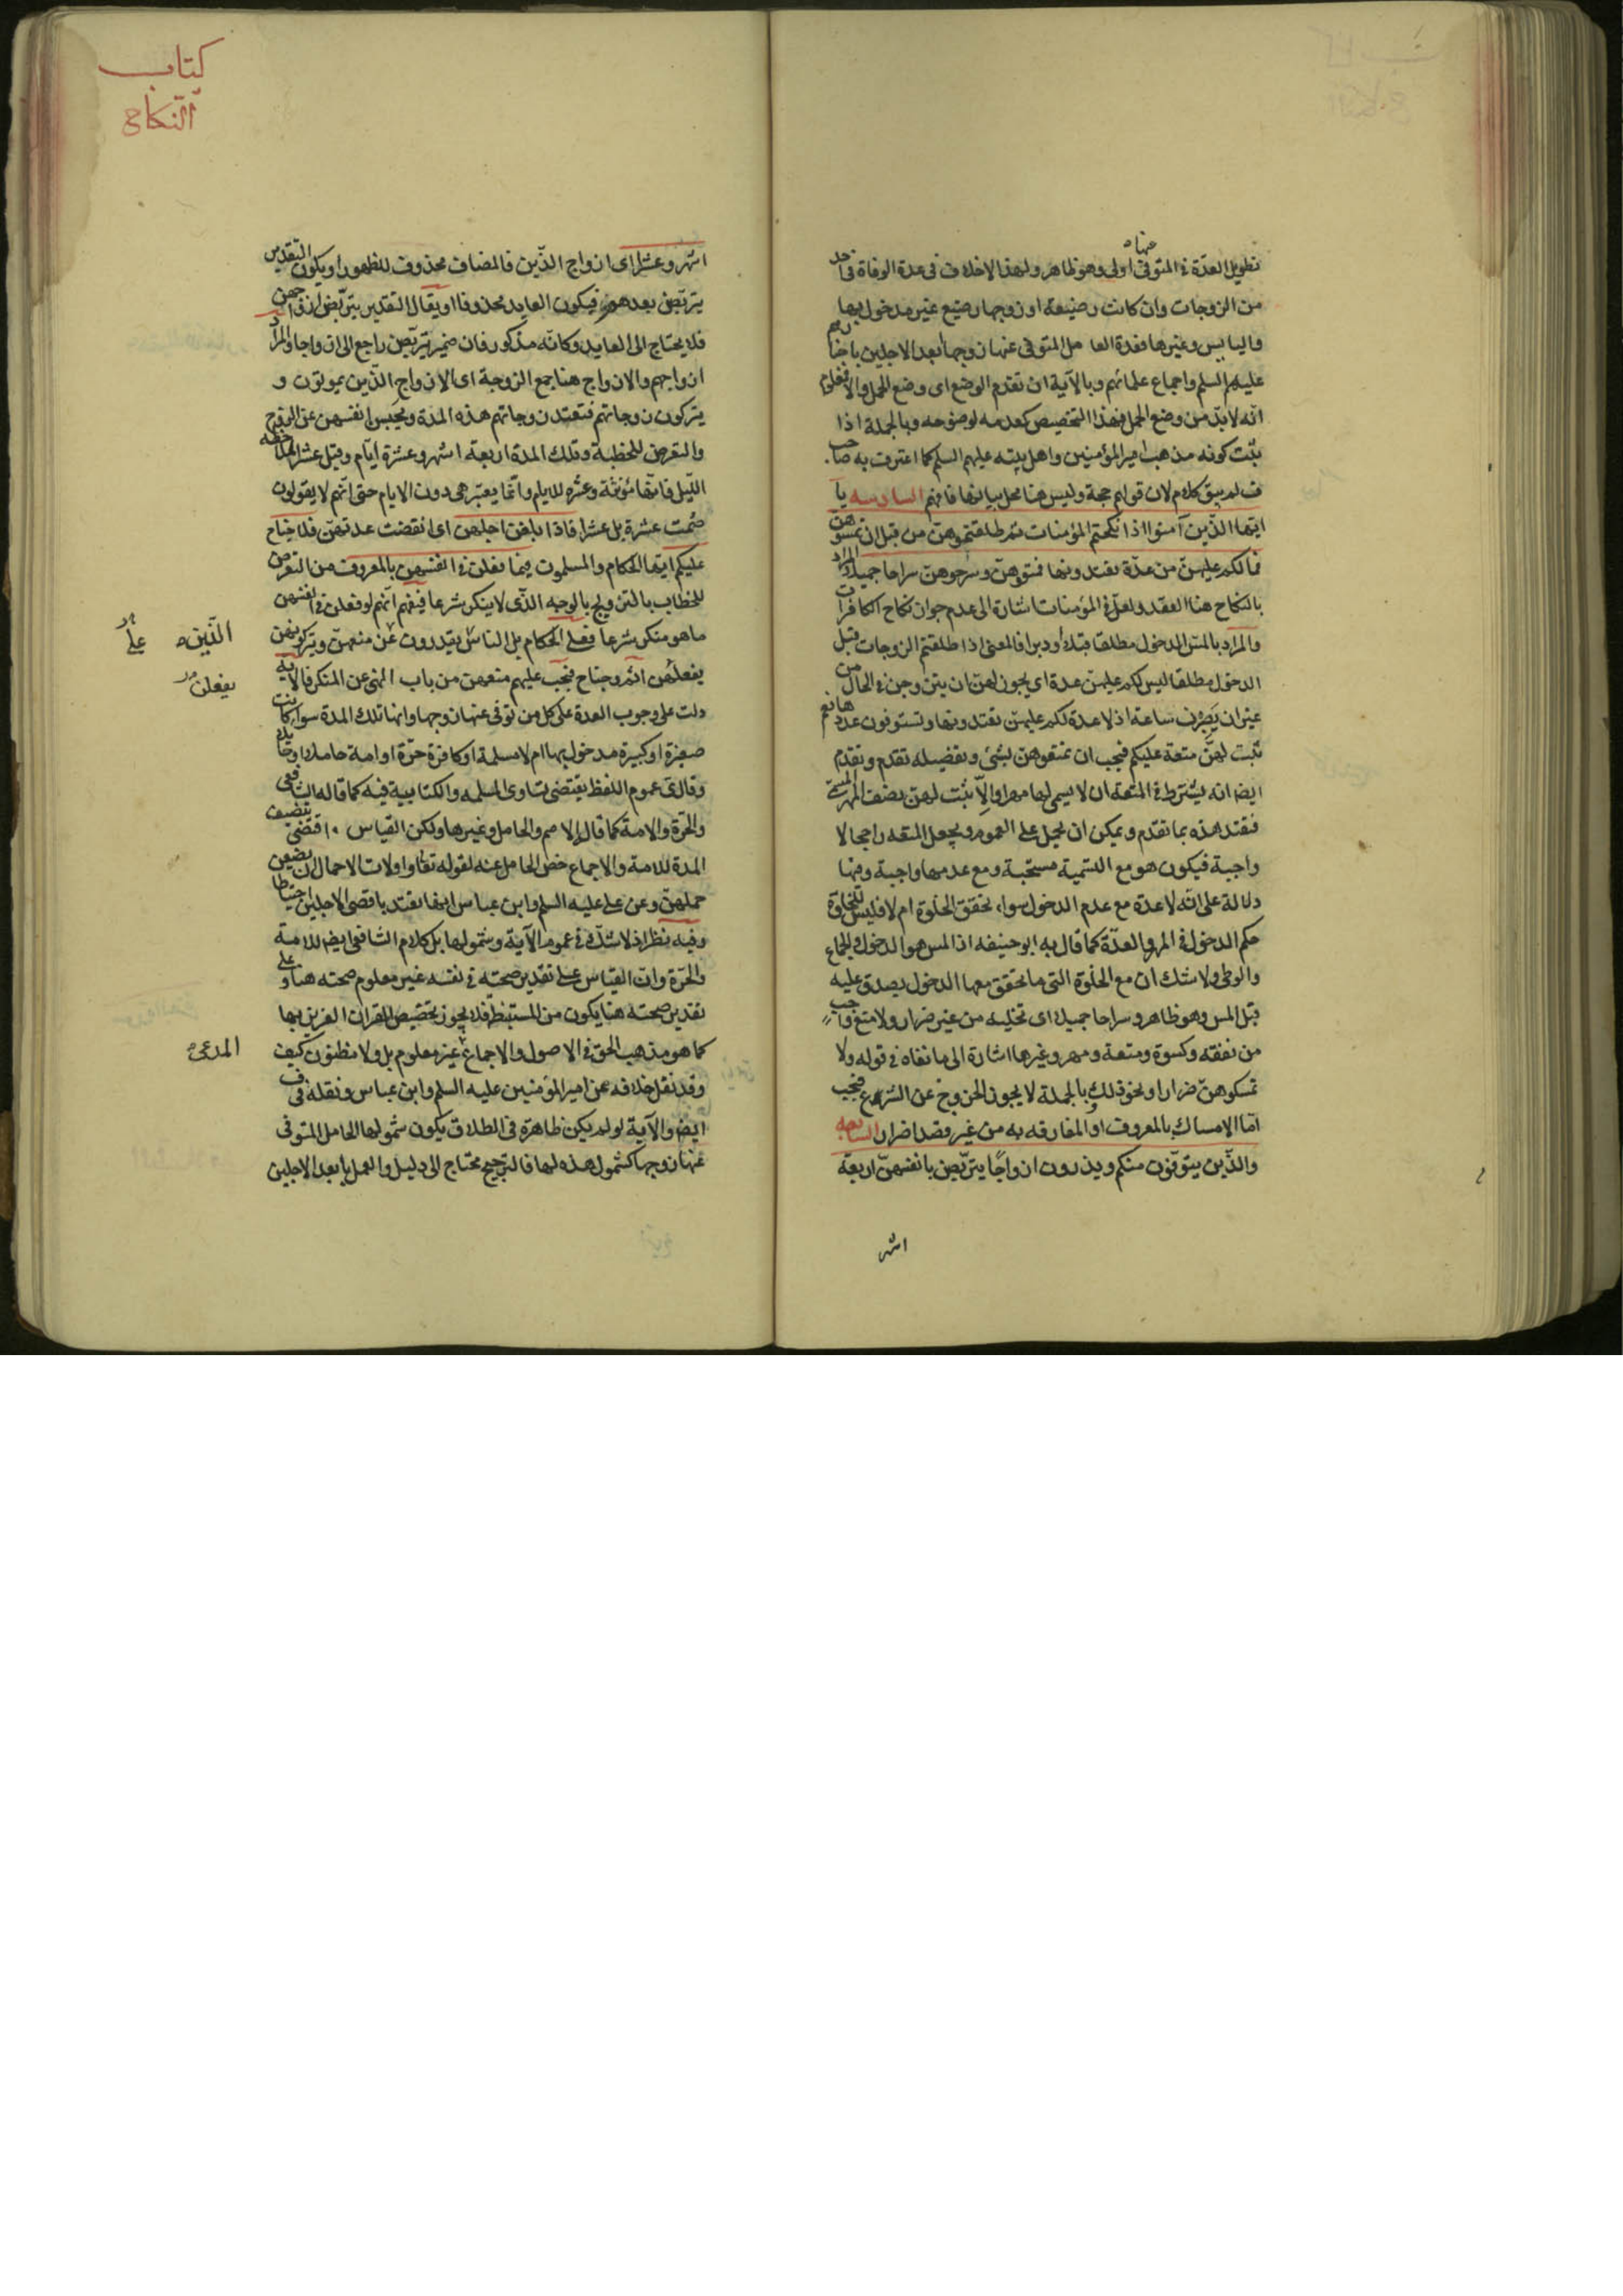 تطويل العدّة في المتوفى اولى وهو ظاهر ولهذا لاخلاف في عدة الوفاة في احد
عنهاه
من الزوجات وان كانت رضيعة او زوجها رضيع غير مدخول بها
واليايس وغيرها فعدة الحامل المتوفى عنها زوجها ابعد الاجلين باخبارهم
عليهم السلم واجماع علمائهم وبالآية ان تقدم الوضع اى وضع الحمل والا فمعلوم
انه لابد من وضع الحمل فهذا التخصيص كعدمه لوضوحه وبالجملة اذا
ثبت كونه مذهب امير المؤمنين واهل بيته عليهم السلم كما اعترف به صاحب
ف لم يبق كلام لان قولهم حجة وليس هنا محل بيانها فافهم السادسة يا
ايتها الذين آمنوا اذا نكحتم المؤمنات ثم طلقتموهن من قبل ان تمسوهن
فما لكم عليهنّ من عدّة تعتدونها فمتعوهنّ وسرحوهنّ سراحا جميلا المراد
بالنكاح هنا العقد ولعلّ في المؤمنات اشارة الى عدم جواز نكاح الكافرات
والمراد بالمسّ الدخول مطلقا قبلا ودبرا فالمعنى اذا طلقتم الزوجات قبل
الدخول مطلقا ليس لكم عليهنّ عدة اى يجوز لهنّ ان يتزوجن في الحال من
غير ان يصبرن ساعة اذ لا عدة لكم عليهنّ تعتدونها وتستوفون عددها نعم
ثبت لهنّ متعة عليكم فيجب ان تمتعوهن بشئ وتفصيله تقدم وتقدم
ايضا انه يشترط في المتعة ان لا يسمى لها مهرا والّا ثبت لهن نصف المهر المسمّى
فتقيد هذه بما تقدم ويمكن ان يحمل على العموم ويجعل المتعه راجحا لا
واجبة فيكون هو مع التسمية مستحبة ومع عدمها واجبة وفيها
دلالة على انّه لا عدة مع عدم الدخول سواء تحقق الخلوة ام لا فليس للخلوة
حكم الدخول في المهر والعدّة كما قال به ابو حنيفه اذ المس هو الدخول والجماع
والوطى ولا شك ان مع الخلوة التى ما تحقق معها الدخول يصدق عليه
قبل المس وهو ظاهر وسراحا جميلا اى تخليه من غير ضرار ولا منع واجب
من نفقه وكسوة ومتعة ومهر وغيرها اشارة الى ما نفاه في قوله ولا
تمسكوهنّ ضرارا ونحو ذلك وبالجملة لا يجوز الخروج عن الشرع فيجب
امّا الامساك بالمعروف او المفارقه به من غير قصد اضرار السابعه
والذّين يتوفّون منكم ويذرون ازواجًا يتربّصن بانفسهنّ اربعة
اشهر
كتاب
النّكاح
اشهر وعشرا اى ازواج الذّين فالمضاف محذوف للظهور او يكون التقدير
يتربّصن بعدهم فيكون العايد محذوفا او يقال التقدير يتربّصن ازواجهن
فلا يحتاج الى العايد وكانّه مذكور فان ضمير يتربّصن راجع الى ازواجا والمراد
ازواجهم والازواج هنا جمع الزوجة اى الازواج الذّين يموتون و
يتركون زوجاتهم فتعتد زوجاتهم هذه المدة ويحبسن انفسهن عن التزوج
والتعرض للخطبة وتلك المدة اربعة اشهر وعشرة ايّام وقيل عشرا لملاحظه
الليل فانّها مؤنثة وعشره للايام وانّما يعتبر هى دون الايام حتى انّهم لا يقولون
صُمت عشرة بل عشرا فاذا بلغن اجلهن اى انقضت عدتهنّ فلا جناح
عليكم ايّتها الحكام والمسلمون فيما فعلن في انفسهن بالمعروف من التعرض
للخطاب بالتزويج بالوجه الذّى لا ينكر شرعا فيفهم انّهم لو فعلن في انفسهن
ما هو منكر شرعا فعلى الحكام بل الناس يقدرون عن منعهنّ ويتركونهن
الذين ه
على
يفعلن اثم وجناح فيجب عليهم منعهن من باب النهى عن المنكر فالآية
يفعلن
دلت على وجوب العدة على كل من توفى عنها زوجها وانها تلك المدة سواء كانت
صغيرة او كبيرة مدخول بها ام لا مسلمة او كافرة حرّة او امة حاملا او حايلا
وقال ى عموم اللفظ يقتضى تساوى المسلمه والكتابية فيه كما قاله الشافعى
والحرّة والامة كما قال الاصم والحامل وغيرها ولكن القياس اقتضى تنصيف
المدة للامة والاجماع خص الحامل عنه لقوله تعا واولات الاحمال ان يضعن
حملهن وعن على عليه السلم وابن عباس انها تعتد باقصى الاجلين احتياطا
وفيه نظر اذ لا شكّ في عموم الآية وشمولها بل كلام الشافعى ايضا للامة
والحرّة وانّ القياس على تقدير صحته في نفسه غير معلوم صحته هنا وعلى
تقدير صحته هنا يكون من المستنبط فلا يجوز تخصيص القران العزيز بها
كما هو مذهب الحق في الاصول والاجماع غير معلوم بل ولا مظنون كيف
المدعى ه
وقد نقل خلافه عن امير المؤمنين عليه السلم وابن عباس ونقله في ف
ايضا والآية لو لم يكن ظاهرة في الطلاق يكون شمولها الحامل المتوفى
عنها زوجها كشمول هذه لها فالترجيح يحتاج الى دليل والعمل بابعد الاجلين